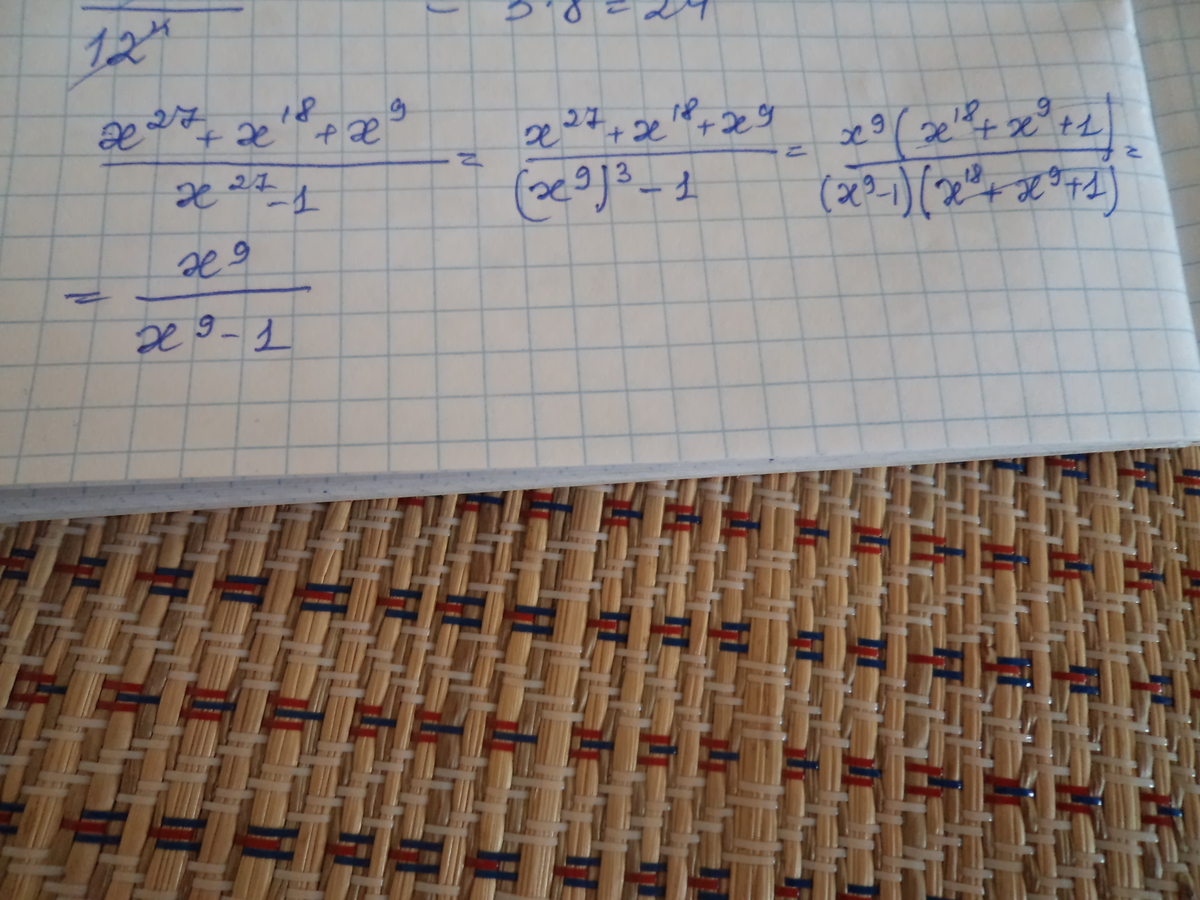 12⁴
= 3·8 = 24
x²⁷ + x¹⁸ + x⁹ / x²⁷ - 1 = x²⁷ + x¹⁸ + x⁹ / (x⁹)³ - 1 = x⁹(x¹⁸ + x⁹ + 1) / (x⁹-1)(x¹⁸ + x⁹ + 1) =
= x⁹ / x⁹ - 1